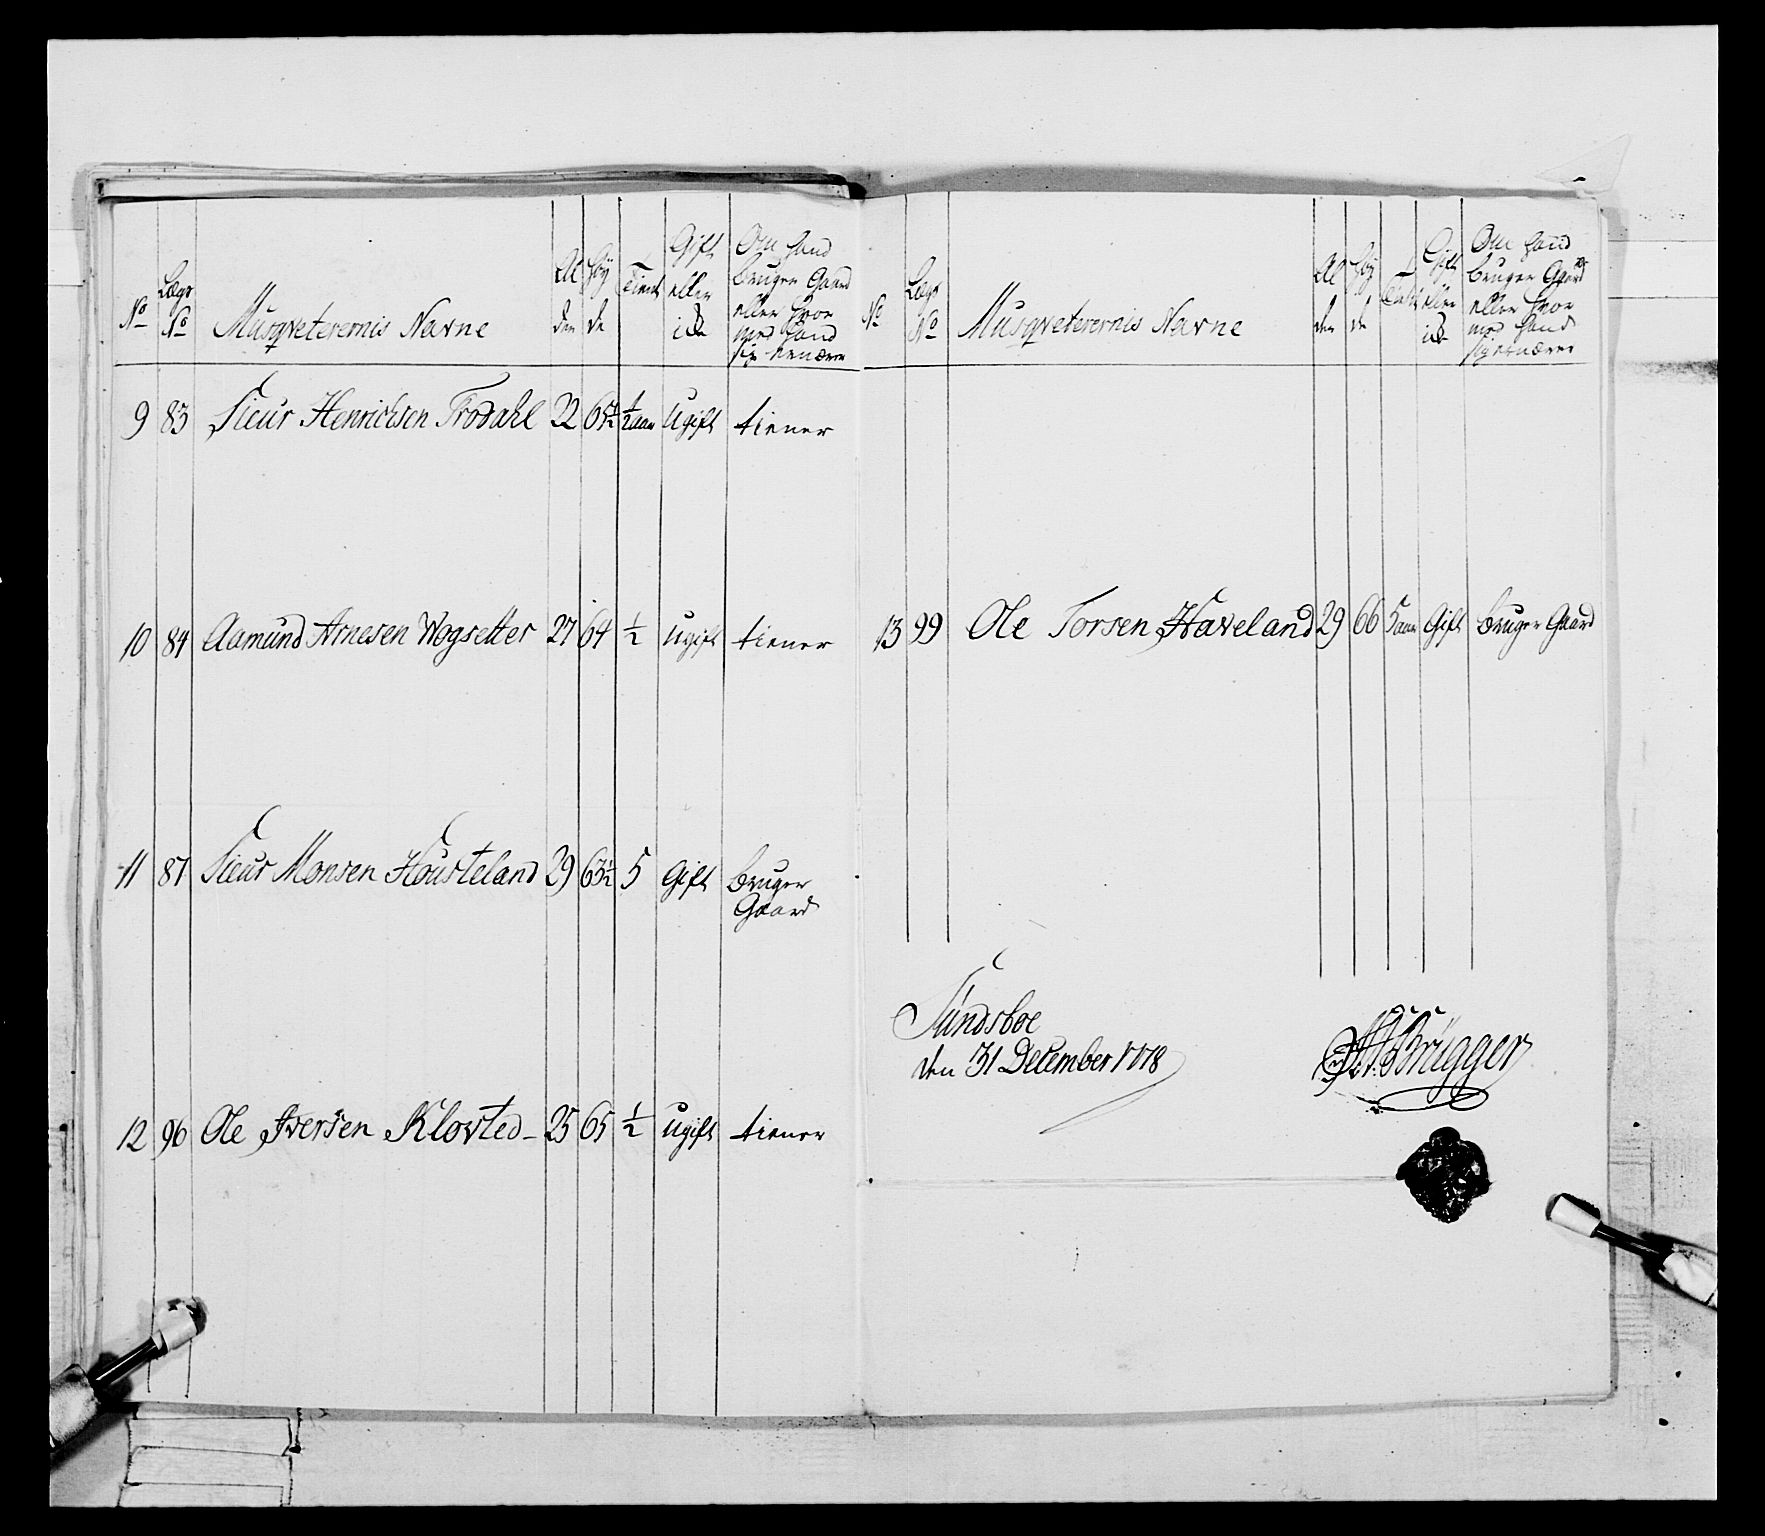 No
Lægs No
Musqveterernis Navne
Al den
Høy de
Tient
Gift eller ick
Om hand
bruger Gaard
eller hvor
med hand
sig ernærer
9 83 Sieur Henrichsen Trodahl 22 65½ ½ aar Ugift tiener
10 84 Aamund Arnesen Wogsetter 27 64 ½ Ugift tiener
11 87 Sieur Monsen Housteland 29 63½ 5 Gift bruger
Gaard
12 96 Ole Iversen Klovsted 25 65 ½ Ugift tiener
No
Lægs No
Musqveterernis Navne
Al den
Høy de
Tient
Gift eller ick
Om hand
bruger Gaard
eller hvor
med hand
sig ernærer
13 99 Ole Torsen Haveland 29 66 5 aar Gift bruger Gaard
Sündsboe
den 31 December 1778
Brügger